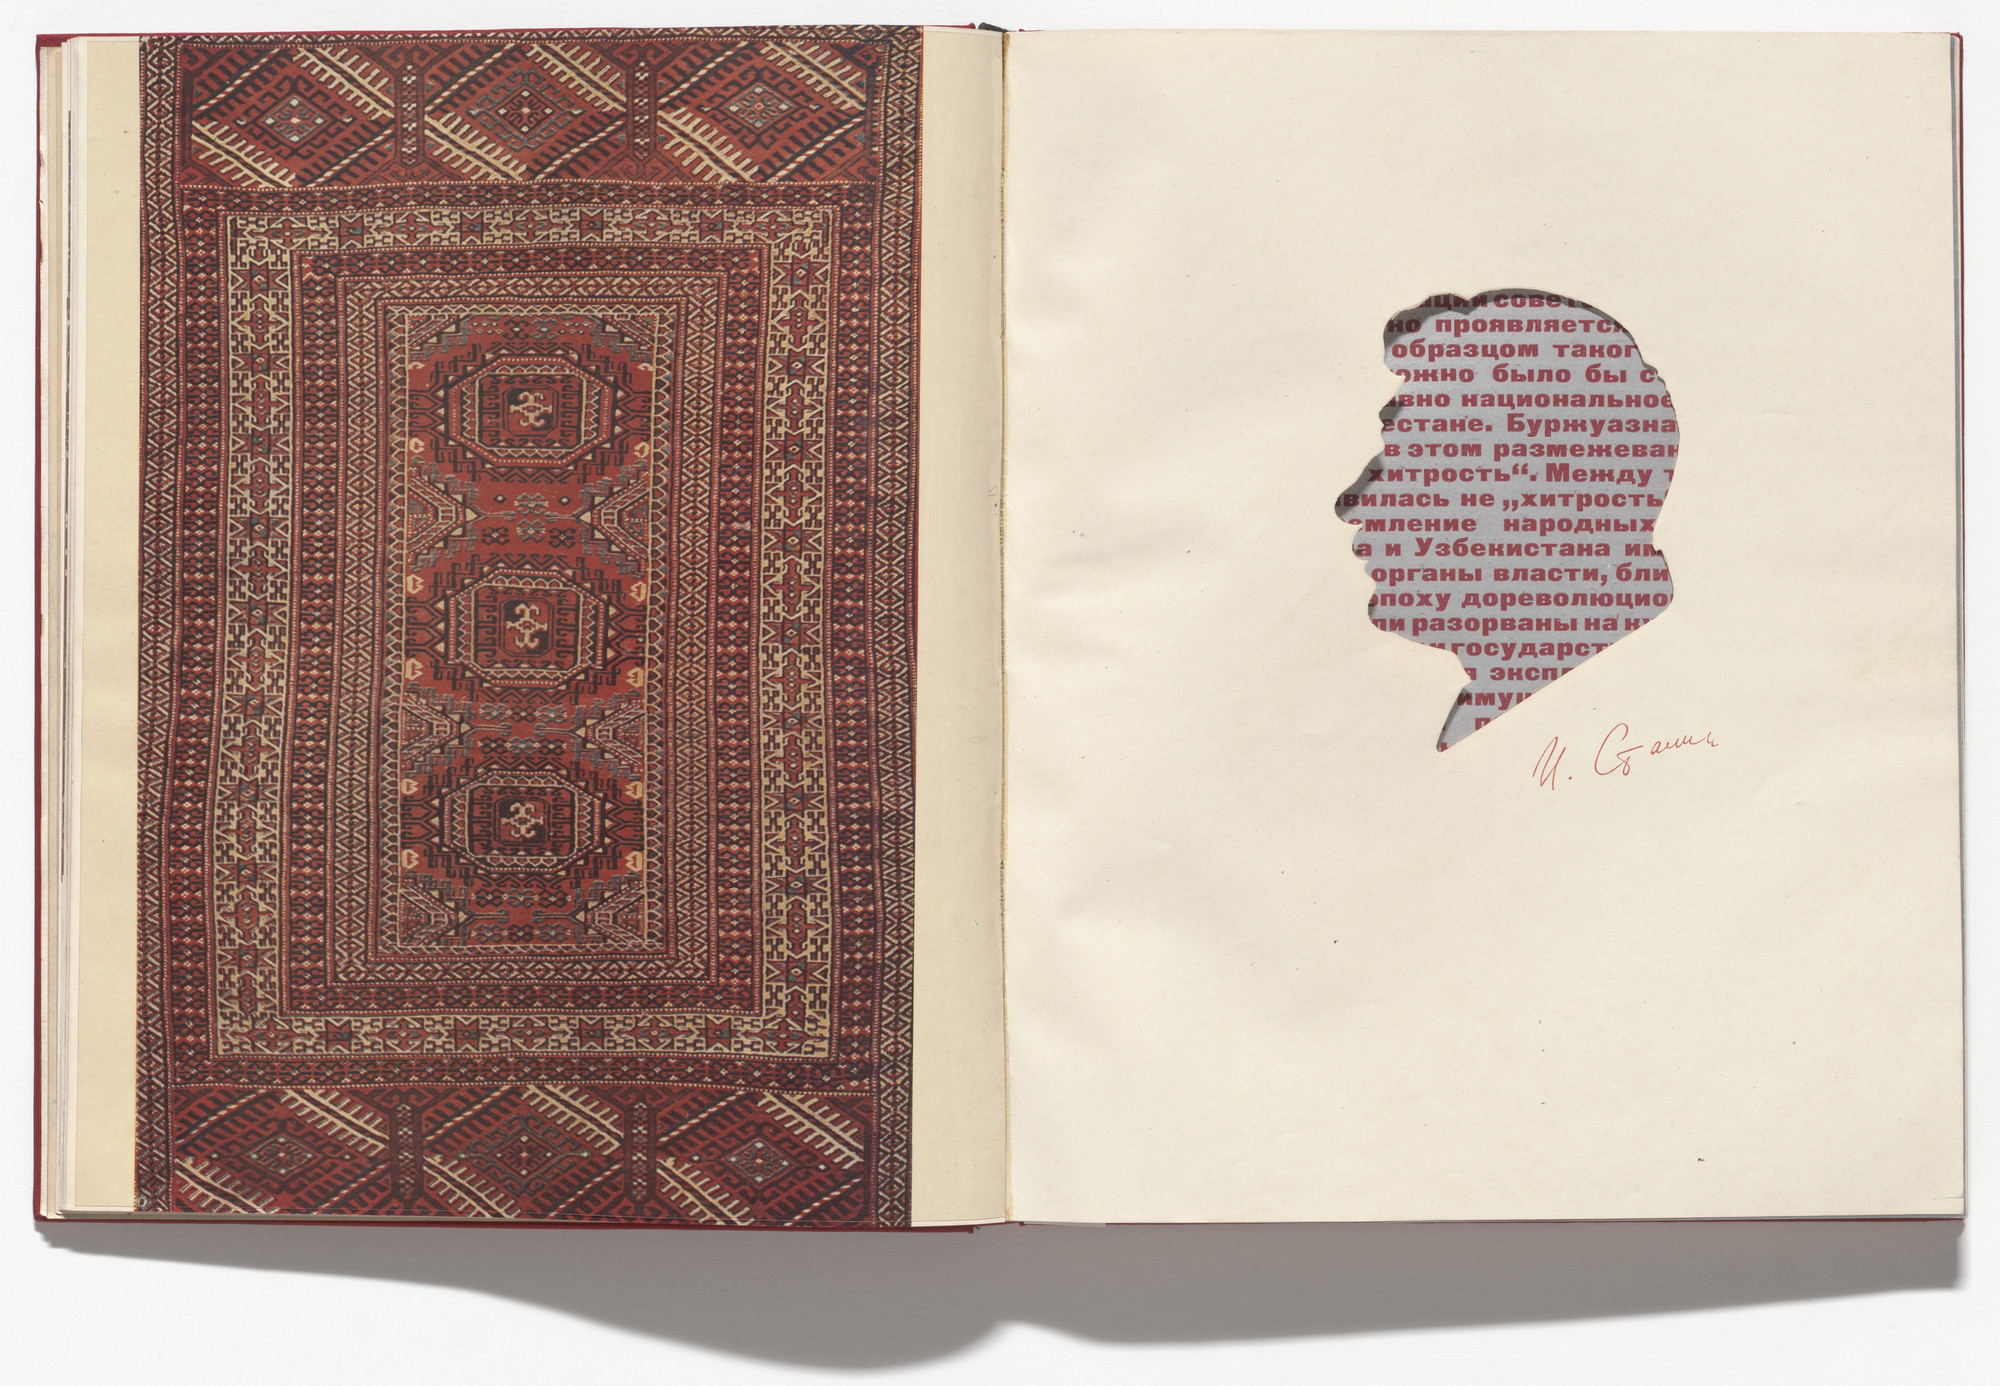 ции сове
но проявляется
образцом таког
ожно было бы с
ивно национальное
естане. Буржуазна
в этом размежеван
хитрость“. Между т
вилась не „хитрость
емление народных
а и Узбекистана им
органы власти, бли
эпоху дореволюцио
ли разорваны на ку
и государст
я эксп
имущ
п
И. Сталин